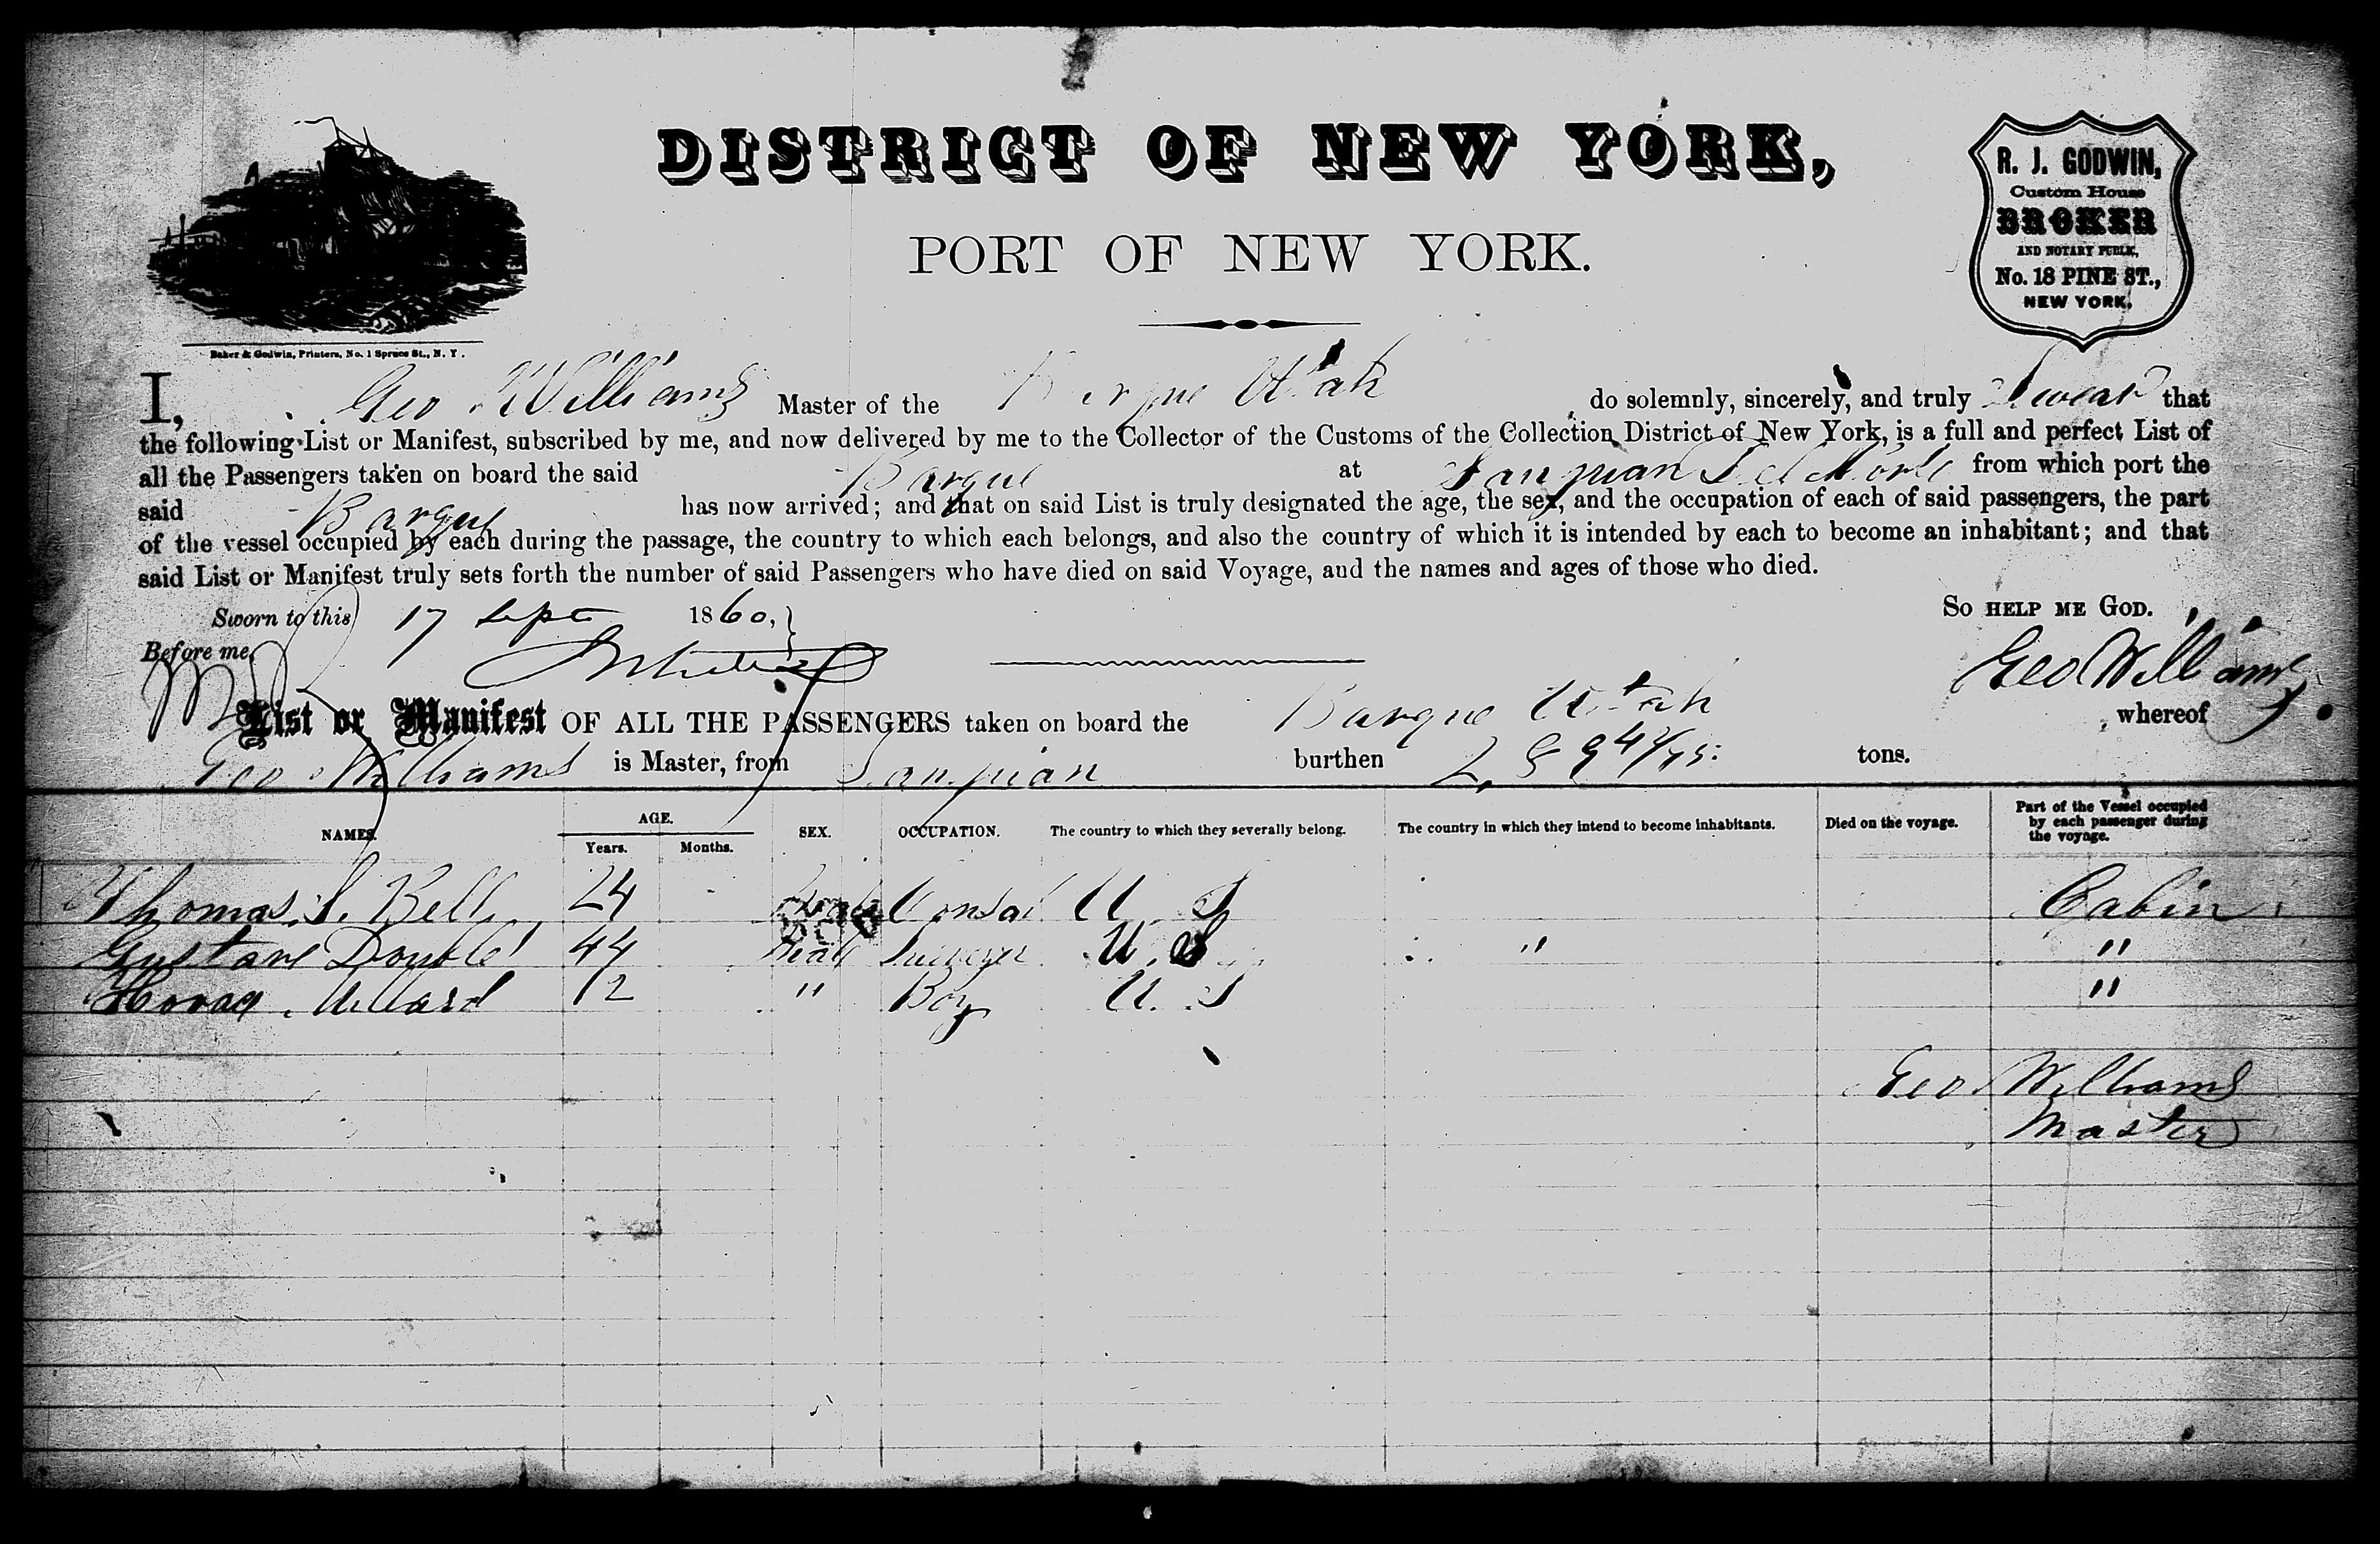 DISTRICT OF NEW YORK,
PORT OF NEW YORK.
R. J. GODWIN,
Custom House
BROKER
AND NOTARY PUBLIC,
No. 18 PINE ST.,
NEW YORK.
Baker & Godwin, Printers, No. 1 Spruce St., N. Y.
I, Geo Williams Master of the Barque Utah do solemnly, sincerely, and truly Swear that
the following List or Manifest, subscribed by me, and now delivered by me to the Collector of the Customs of the Collection District of New York, is a full and perfect List of
all the Passengers taken on board the said Barque at San Juan Del Norte from which port the
said Barque has now arrived; and that on said List is truly designated the age, the sex, and the occupation of each of said passengers, the part
of the vessel occupied by each during the passage, the country to which each belongs, and also the country of which it is intended by each to become an inhabitant; and that
said List or Manifest truly sets forth the number of said Passengers who have died on said Voyage, and the names and ages of those who died.
Sworn to this 17 Sept 1860, So HELP ME GOD.
Before me, Geo Williams
List or Manifest OF ALL THE PASSENGERS taken on board the Barque Utah whereof
Geo Williams is Master, from San Juan burthen tons.
NAMES. AGE. SEX. OCCUPATION. The country to which they severally belong. The country in which they intend to become inhabitants. Died on the voyage. Part of the Vessel occupied by each passenger during the voyage.
Years. Months.
Thomas Bell 24 Consul U S Cabin
Gustave 44 Male U. S " "
Willard 12 " Boy U. S "
Geo Williams
Master